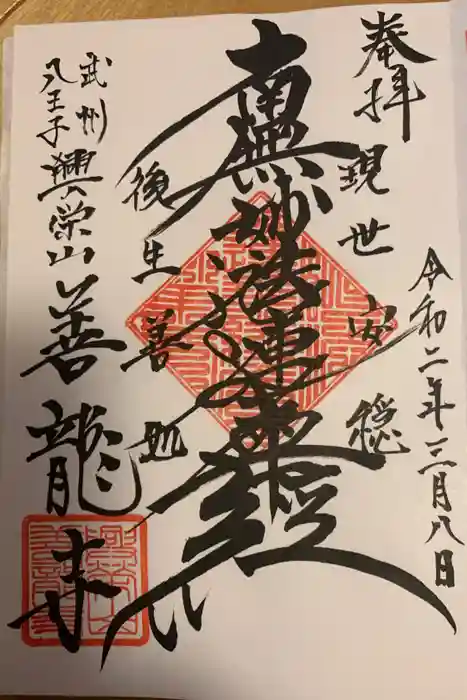 奉拝
令和二年三月八日
現世安穏
南無妙法蓮華経
後生善処
武州
八王子
興栄山善龍寺